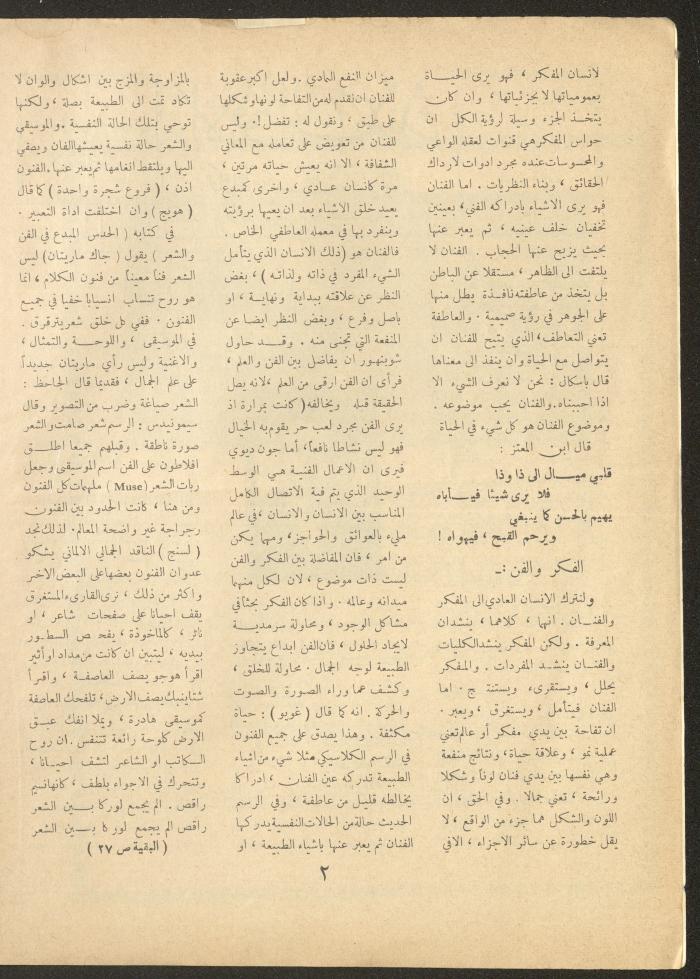 لانسان المفكر ، فهو يرى الحياة
بعمومياتها لابجزئياتها ، وان كان
يتخذ الجزء وسيلة لرؤية الكل ان
حواس المفكرهي قنوات لعقله الواعي
والمحسوسات عنده مجرد ادوات لادراك
الحقائق ، وبناء النظريات . اما الفنان
فهو يرى الاشياء بادراكه الفني، بعينين
تخفيان خلف عينيه ، ثم يعبر عنها
بحيث يزيح عنها الحجاب . الفنان لا
يلتفت الى الظاهر ، مستقلا عن الباطن
بل يتخذ من عاطفته نافذة يطل منها
على الجوهر في رؤية صميمية . والعاطفة
تعني التعاطف، الذي يتيح للفنان ان
يتواصل مع الحياة وان ينفذ الى معناها
قال باسكال : نحن لا نعرف الشيء الا
اذا احببناه. والفنان يحب موضوعه .
وموضوع الفنان هو كل شيء في الحياة
قال ابن المعتز :
قلبي ميال الى ذا وذا
فلا يرى شيئا فيأباه
يهيم بالحسن كما ينبغي
ويرحم القبح ، فيهواه !
الفكر والفن :ـ
ولنترك الانسان العادي الى المفكر
والفنان . انهما ، كلاهما ، ينشدان
المعرفة . ولكن المفكر ينشد الكليات
والفنان ينشد المفردات . والمفكر
يحلل ، ويستقرىء ويستنتج . اما
الفنان فيتأمل ، ويستغرق ، ويعبر .
ان تفاحة بين يدي مفكر أو عالم تعني
عملية نمو ، وعلاقة حياة، ونتائج منفعة
وهي نفسها بين يدي فنان لوناً وشكلا
ورائحة ، تعني جمالا . وفي الحق ، ان
اللون والشكل هما جزء من الواقع ، لا
يقل خطورة عن سائر الاجزاء ، الافي
ميزان النفع المادي . ولعل اكبر عقوبة
للفنان ان نقدم له من التفاحة لونها وشكلها
على طبق ، ونقول له : تفضل !. وليس
للفنان من تعويض على تعامله مع المعاني
الشفافة ، الا انه يعيش حياته مرتين ،
مرة كانسان عادي ، واخرى كمبدع
يعيد خلق الاشياء بعد ان يعيها برؤيته
وينفرد بها في معمله العاطفي الخاص .
فالفنان هو (ذلك الانسان الذي يتأمل
الشيء المفرد في ذاته ولذاته) ، بغض
النظر عن علاقته ببداية ونهاية ، او
باصل وفرع ، وبغض النظر ايضا عن
المنفعة التي تجنى منه . وقد حاول
شوبنهور ان يفاضل بين الفن والعلم ،
فرأى ان الفن ارقى من العلم ، لانه يصل
الحقيقة قبله ويخالفه (كانت بمرارة اذ
يرى الفن مجرد لعب حر يقوم به الخيال
فهو ليس نشاطا نافعا، أما جون ديوي
فيرى ان الاعمال الفنية هي الوسط
الوحيد الذي يتم فيه الاتصال الكامل
المناسب بين الانسان والانسان ، في عالم
مليء بالعوائق والحواجز، ومهما يكن
من امر ، فان المفاضلة بين الفكر والفن
ليست ذات موضوع ، لان لكل منهما
ميدانه وعالمه . واذا كان الفكر بحثا في
مشاكل الوجود ، ومحاولة سرمدية
لايجاد الحلول ، فان الفن ابداع يتجاوز
الطبيعة لوجه الجمال . محاولة للخلق ،
وكشف عما وراء الصورة والصوت
والحركة . انه كما قال (غويو) : حياة
مكثفة . وهذا يصدق على جميع الفنون
في الرسم الكلاسيكي مثلا شيء من اشياء
الطبيعة تدركه عين الفنان ، ادراكا
يخالطه قليل من عاطفة ، وفي الرسم
الحديث حالة من الحالات النفسية يدركها
الفنان ثم يعبر عنها باشياء الطبيعة ، او
بالمزاوجة والمزج بين اشكال والوان لا
تكاد تمت الى الطبيعة بصلة ، ولكنها
توحي بتلك الحالة النفسية . والموسيقى
والشعر حالة نفسية يعيشها الفنان ويصغي
اليها ويلتقط انغامها ثم يعبر عنها. الفنون
اذن ، (فروع شجرة واحدة) كما قال
(هويج) وان اختلفت اداة التعبير .
في كتابه (الحدس المبدع في الفن
والشعر) يقول (جاك ماريتان) ليس
الشعر فناً معيناً من فنون الكلام ، انما
هو روح تنساب انسيابا خفيا في جميع
الفنون . ففي كل خلق شعر يترقرق .
في الموسيقى ، واللوحة ، والتمثال ،
والاغنية وليس رأي ماريتان جديداً
على علم الجمال ، فقديما قال الجاحظ :
الشعر صياغة وضرب من التصوير وقال
سيمونيدس : الرسم شعر صامت والشعر
صورة ناطقة . وقبلهم جميعا اطلق
افلاطون على الفن اسم الموسيقى وجعل
ربات الشعر (Muse) ملهمات كل الفنون
ومن هنا ، كانت الحدود بين الفنون
رجراجة غير واضحة المعالم. لذلك نجد
(لسنج) الناقد الجمالي الالماني يشكو
عدوان الفنون بعضها على البعض الاخر
واكثر من ذلك ، نرى القارىء المستغرق
يقف احيانا على صفحات شاعر ، او
ناثر ، كالمأخوذة ، يفحص السطور
بيديه ، ليتبين ان كانت من مداد او أثير
اقرأ هوجو يصف العاصفة ، واقرأ
شتاينبك يصف الارض، تلفحك العاصفة
كموسيقى هادرة ، ويملا انفك عبق
الارض كلوحة رائعة تتنفس . ان روح
الكاتب او الشاعر لتشف احيانا ،
وتتحرك في الاجواء بلطف ، كانها نسيم
راقص . الم يجمع لوركا بين الشعر
راقص الم يجمع لوركا بين الشعر
( البقية ص ٢٧ )
٢